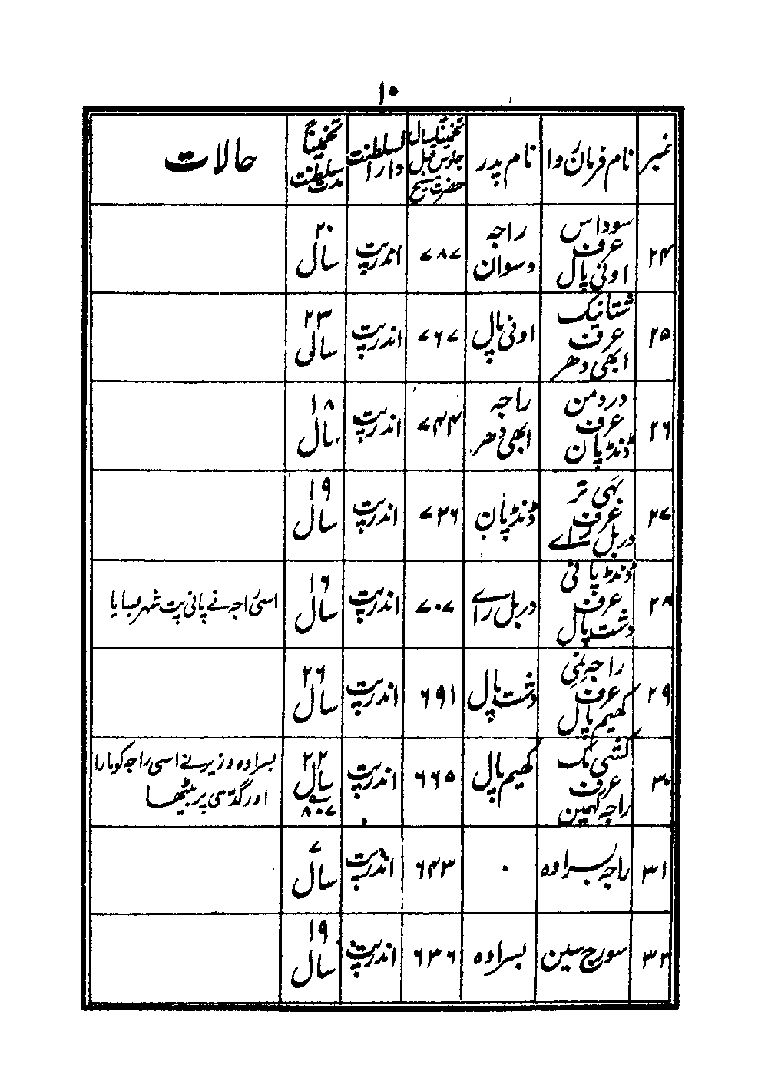 ۱۰
نمبر | نام فرمان روا | نام پدر | تخمیناً سال جلوس قبل حضرت مسیح | دارالسلطنت | تخمیناً مدت سلطنت | حالات
۲۴ | سوداس عرف اونی پال | راجہ دسوان | ۷۸۷ | اندرپت | ۲۰ سال
۲۵ | شتانیک عرف ابھی دھر | اونی پال | ۷۶۷ | اندرپت | ۲۳ سال
۲۶ | دردمن عرف ڈنڈپان | راجہ ابھی دھر | ۷۴۴ | اندرپت | ۱۸ سال
۲۷ | بہی تر عرف دربل راے | ڈنڈپان | ۷۲۶ | اندرپت | ۱۹ سال
۲۸ | ڈنڈپانی عرف دشت پال | دربل راے | ۷۰۷ | اندرپت | ۱۶ سال | اسی راجہ نے پانی پت شہر بسایا
۲۹ | راجہ نمی عرف کھیم پال | دشت پال | ۶۹۱ | اندرپت | ۲۶ سال
۳۰ | کشی مک عرف راجہ کھمین | کھیم پال | ۶۶۵ | اندرپت | ۲۲ سال ۸۰۷ | بسرادہ وزیر نے اسی راجہ کو مارا اور گدی پر بیٹھا
۳۱ | راجہ بسرادہ | ۰ | ۶۴۳ | اندرپت | ۷ سال
۳۲ | سورج سین | بسرادہ | ۶۳۶ | اندرپت | ۱۹ سال